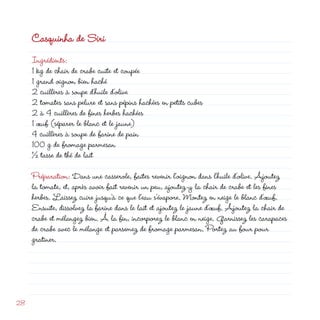 Casquinha de Siri
Ingrédients:
1 kg de chair de crabe cuite et coupée
1 grand oignon bien haché
2 cuillères à soupe d'huile d'olive
2 tomates sans pelure et sans pépins hachées en petits cubes
2 à 4 cuillères de fines herbes hachées
1 œuf (séparer le blanc et le jaune)
4 cuillères à soupe de farine de pain
100 g de fromage parmesan
½ tasse de thé de lait
Préparation: Dans une casserole, faites revenir l'oignon dans l'huile d'olive. Ajoutez
la tomate, et, après avoir fait revenir un peu, ajoutez-y la chair de crabe et les fines
herbes. Laissez cuire jusqu'à ce que l'eau s'évapore. Montez en neige le blanc d'œuf.
Ensuite, dissolvez la farine dans le lait et ajoutez le jaune d'œuf. Ajoutez la chair de
crabe et mélangez bien. À la fin, incorporez le blanc en neige. Garnissez les carapaces
de crabe avec le mélange et parsemez de fromage parmesan. Portez au four pour
gratiner.
28